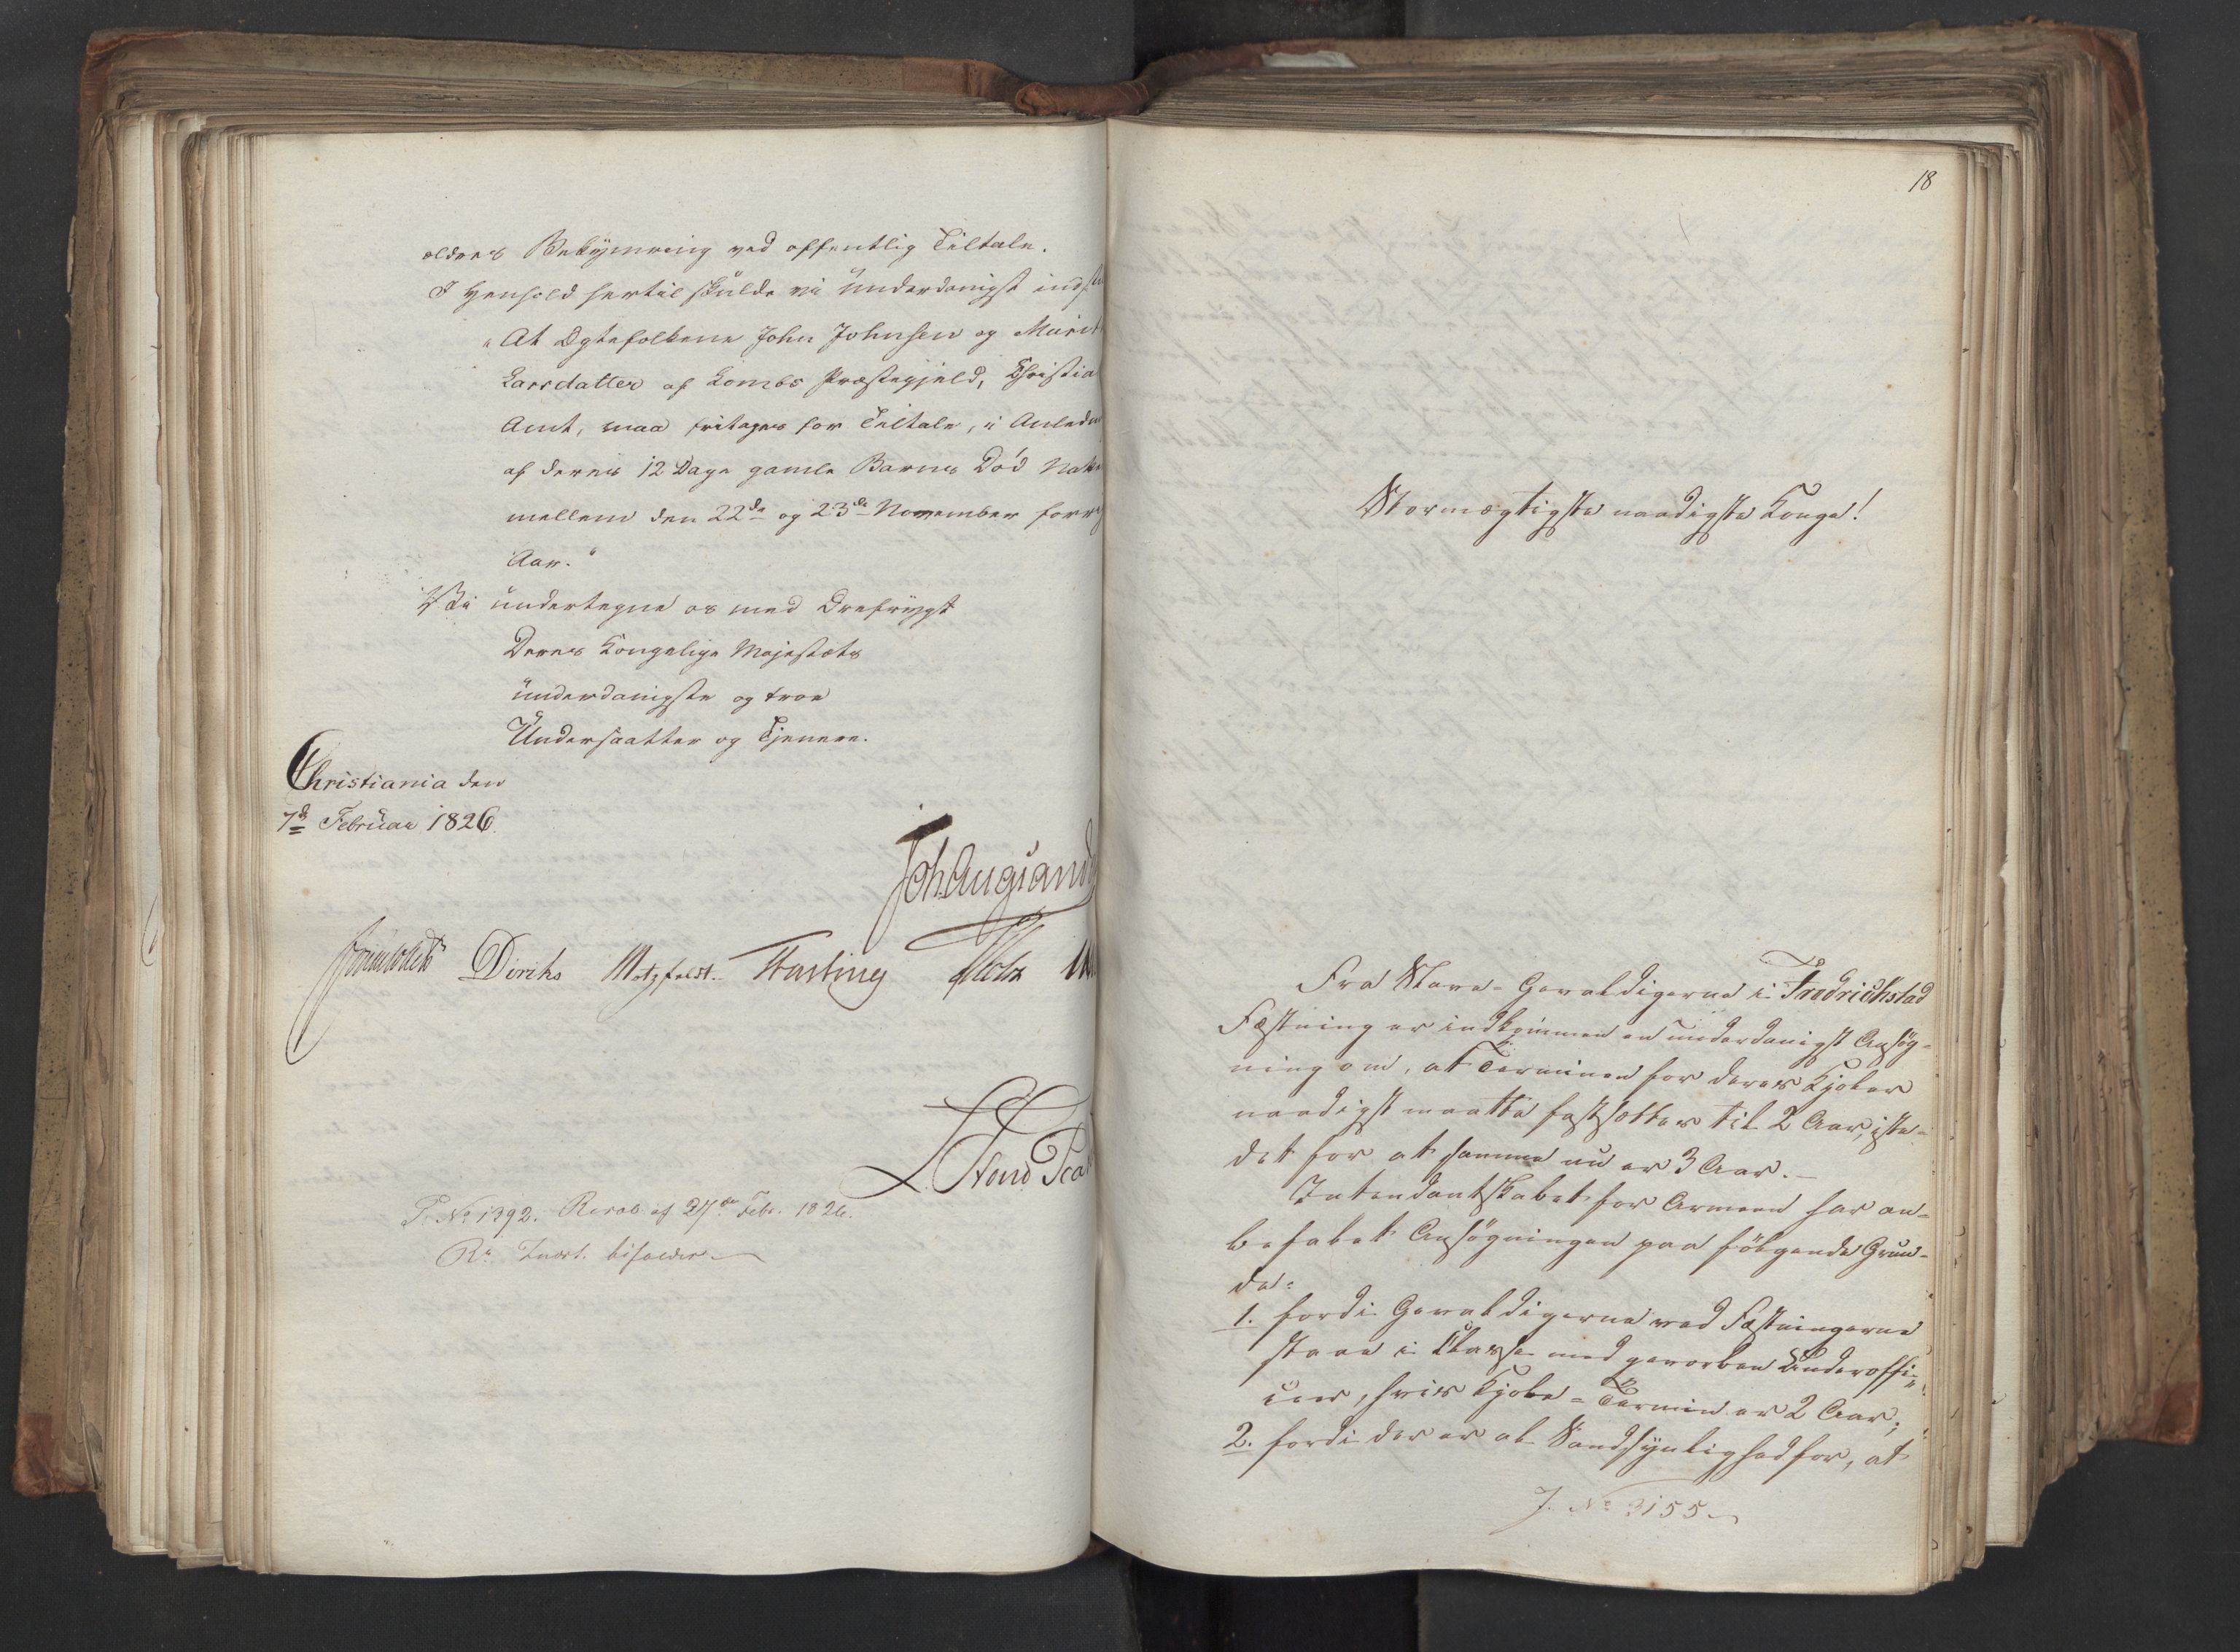 ældres Bekymring ved offentlig Tiltale.
I Henhold hertil skulde vi underdanigst
"At Ægtefolkene John Johnsen og Marit
Larsdatter af Lombs Præstegjeld, Christia
Amt, maa fritages for Tiltale, i Anledn
af deres 12 Dage gamle Barns Død Nat
mellem den 22de og 23de November forr
Aar."
Vi undertegne os med Ærefrygt
Deres Kongelige Majestæts
underdanigste og troe
Undersaatter og Tjenere.
Christiania den
7de Februar 1826.
Joh. Aug. Sand
Diriks Motzfeldt. Fasting Holst
P. No 1392. Resol af 27de Febr. 1826.
Rs. Indst. bifaldes
18
Stormægtigste naadigste Konge!
Fra Stave-Gevaldigerne i Fredrichstad
Fæstning er indkommen en underdanigst Ansøg-
ning om, at Terminen for deres Kjoler
naadigst maatte fastsættes til 2 Aar, iste-
det for at samme nu er 3 Aar.-
Intendantskabet for Armeen har an-
befalet Ansøgningen paa følgende Grun-
de:
1. fordi Gevaldigerne ved Fæstningerne
staae i Classe med gevorben Underoffi-
cier, hvis Kjole-Termin er 2 Aar,
2. fordi der er al Sandsynlighed for, at
J. No 3155